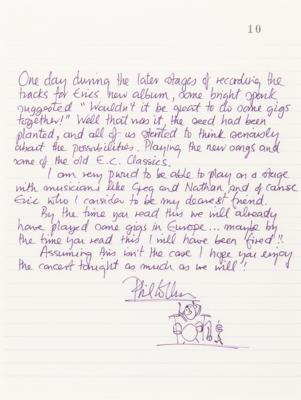 10
One day during the later stages of recording the
tracks for Erics new album, some bright spark
suggested "Wouldn't it be great to do some gigs
together!" Well that was it, the seed had been
planted, and all of us started to think seriously
about the possibilities. Playing the new songs and
some of the old E.C. Classics.
I am very proud to be able to play on a stage
with musicians like Greg and Nathan and of course
Eric who I consider to be my dearest friend.
By the time you read this we will already
have played some gigs in Europe... maybe by
the time you read this I will have been fired!!
Assuming this isn't the case I hope you enjoy
the concert tonight as much as we will!
Phil Collins